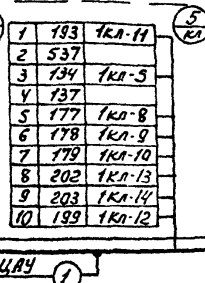 5
КЛ
1 193 1КЛ-11
2 537
3 134 1КЛ-5
4 137
5 177 1КЛ-8
6 178 1КЛ-9
7 179 1КЛ-10
8 202 1КЛ-13
9 203 1КЛ-14
10 199 1КЛ-12
ЦАУ 1